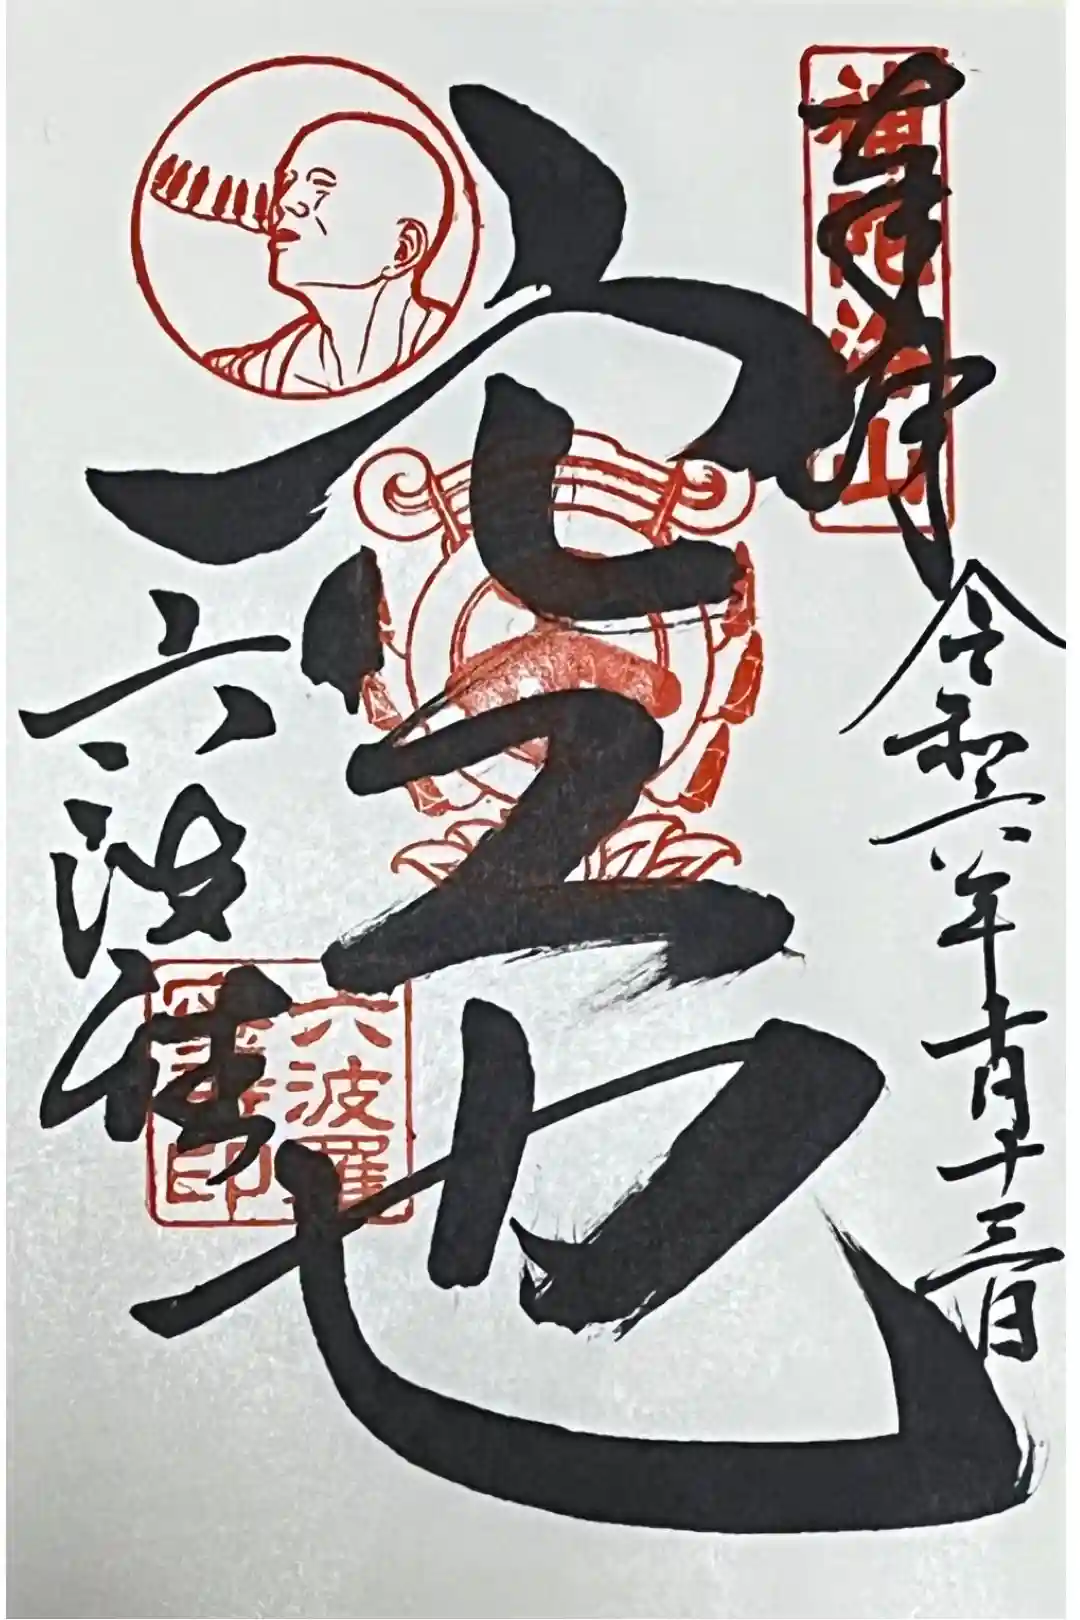 補陀洛山
奉拝
令和六年十月十三日
空也
六波羅
六波羅
蜜寺印